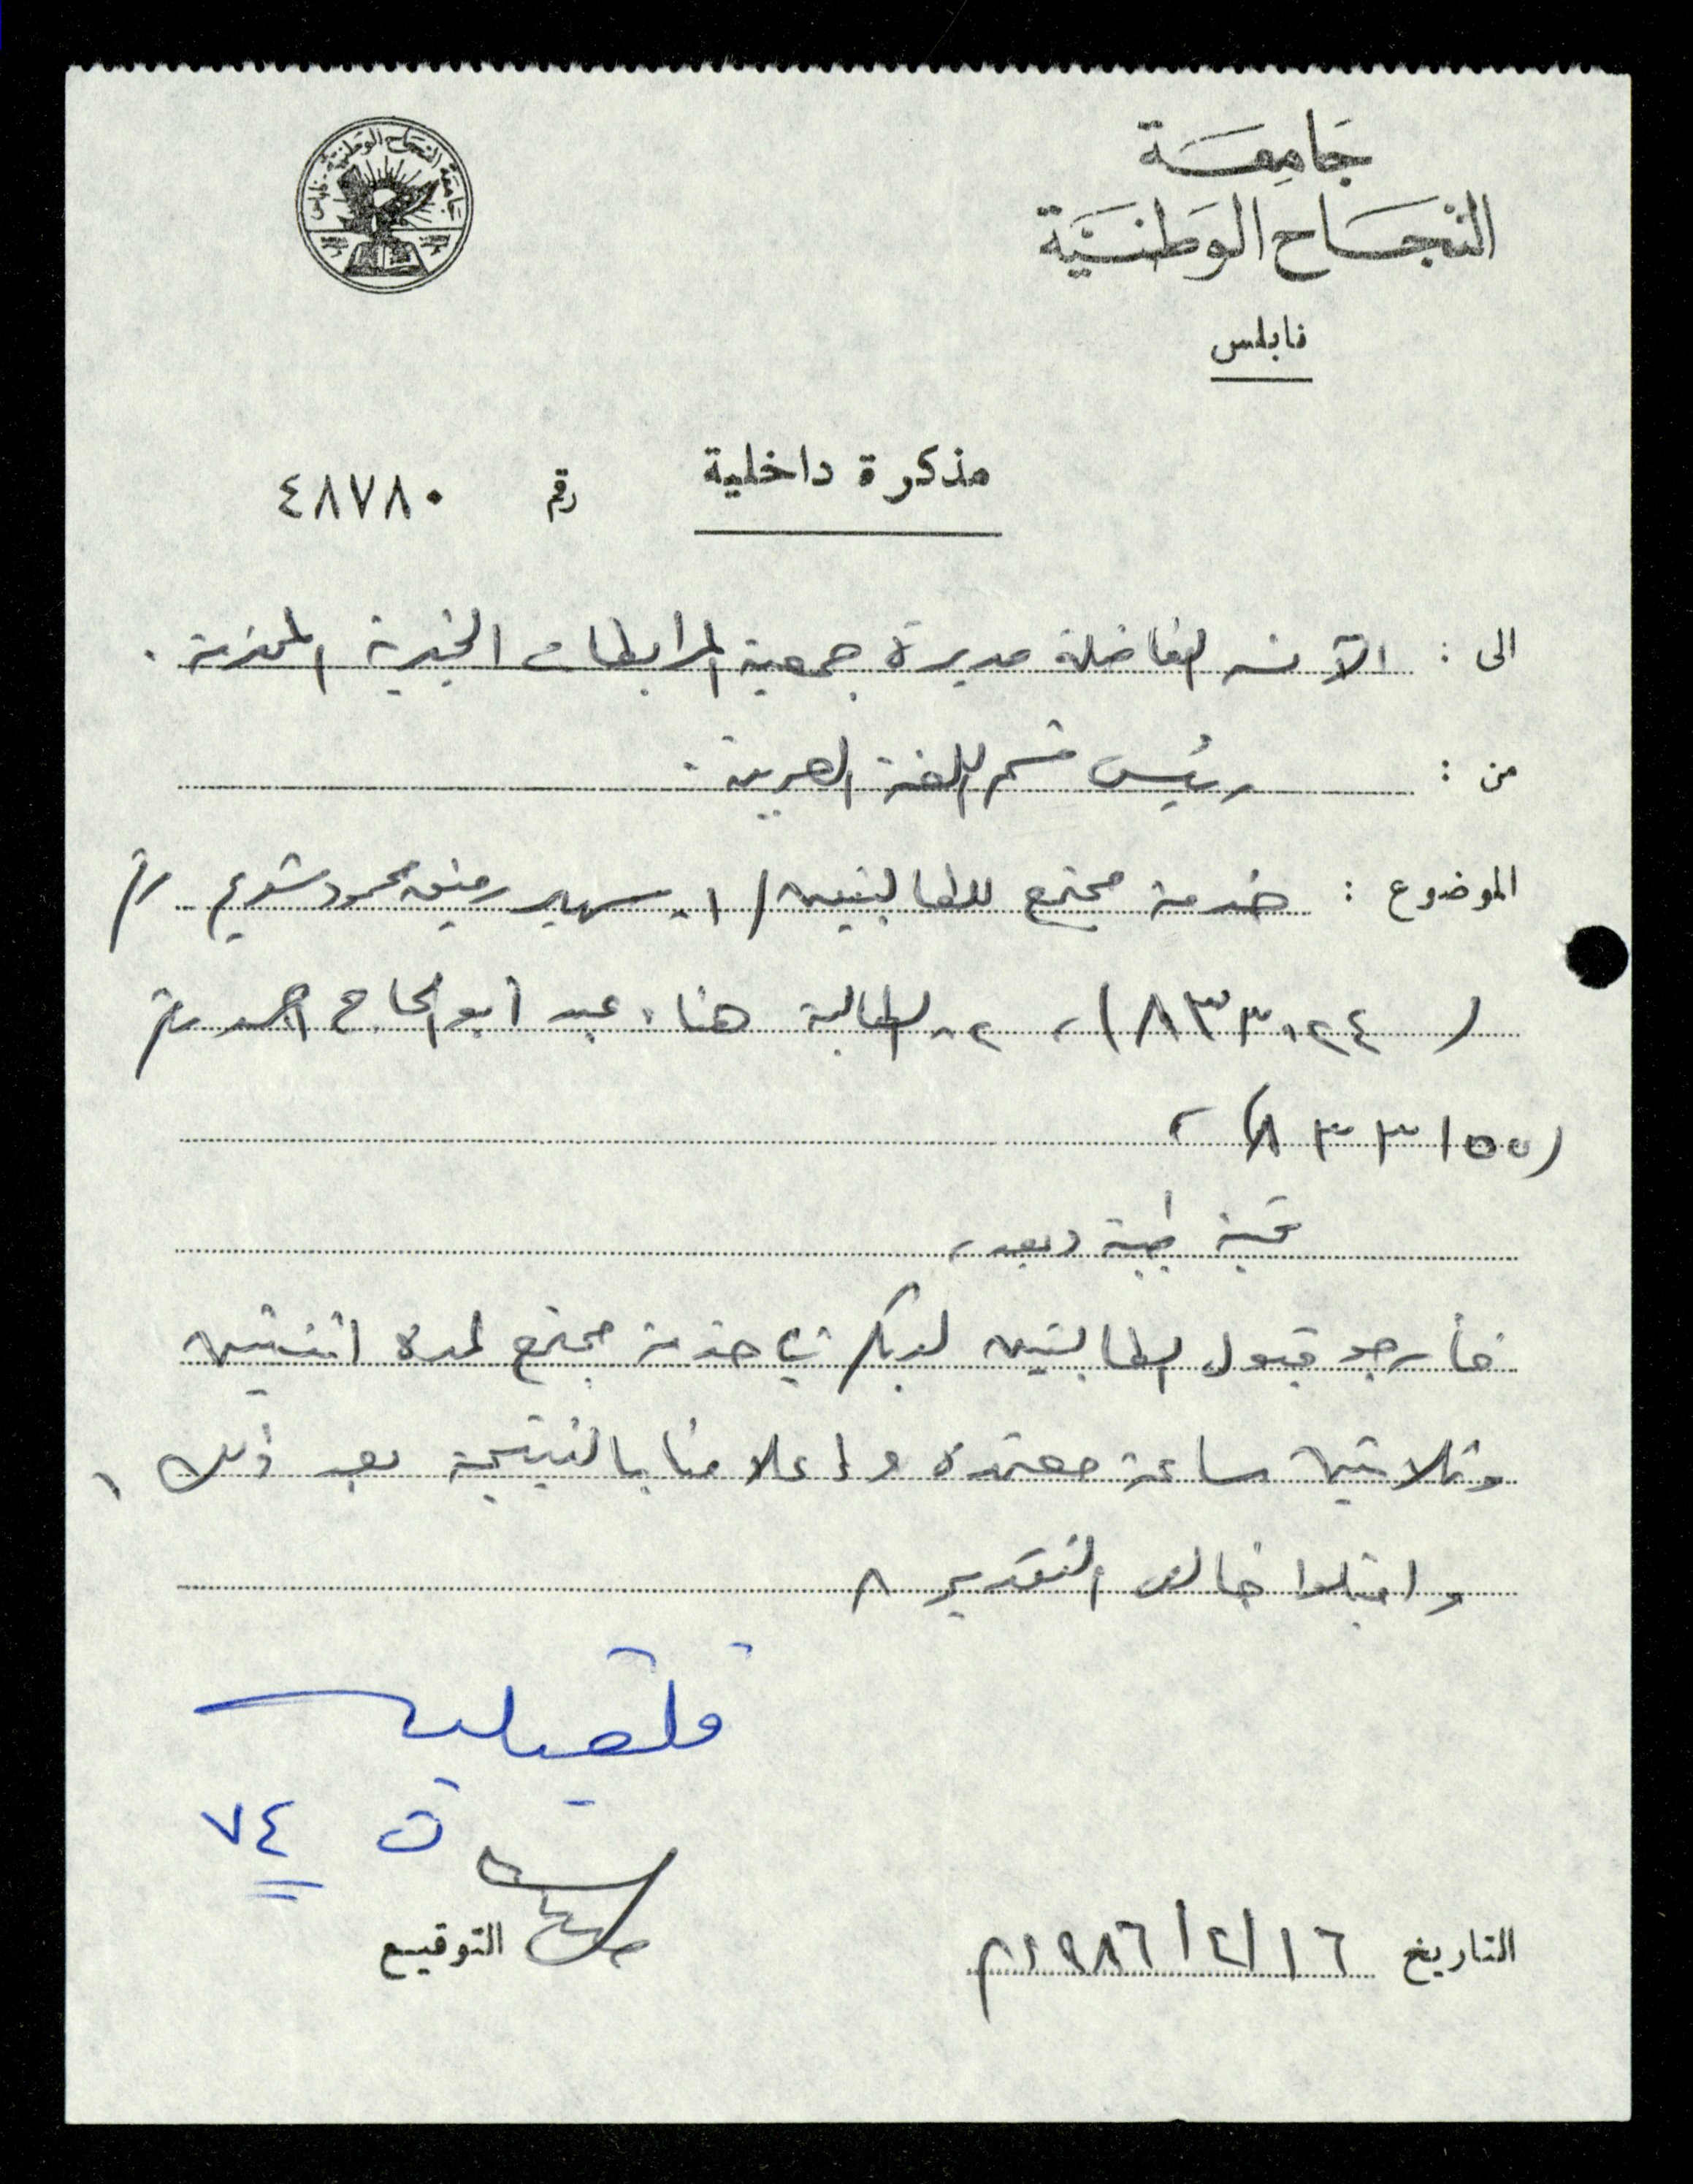 جامعة
النجاح الوطنية
نابلس
جامعة النجاح الوطنية - نابلس
مذكرة داخلية رقم ٤٨٧٨٠
الى : الآنسه الفاضلة مديرة جمعية المرابطات الخيرية المحترمة .
من : رئيس قسم اللغة العربية .
الموضوع : خدمة مجتمع للطالبتين / ١. سهير رفيق محمود شريم رقم
(٨٣٣٠٢٤) ، ٢. الطالبة هناء عبد أبو الحاج احمد رقم
(٨٣٣١٥٥) ،
تحية طيبة وبعد ،
فأرجو قبول الطالبتين لديكم في خدمة مجتمع لمدة اثنتين
وثلاثين ساعة معتمدة وإعلامنا بالنتيجة بعد ذلك ،
واقبلوا خالص التقدير ٨
قلقيلية
ن ٧٤
التاريخ ١٦/٢/١٩٨٦م التوقيع